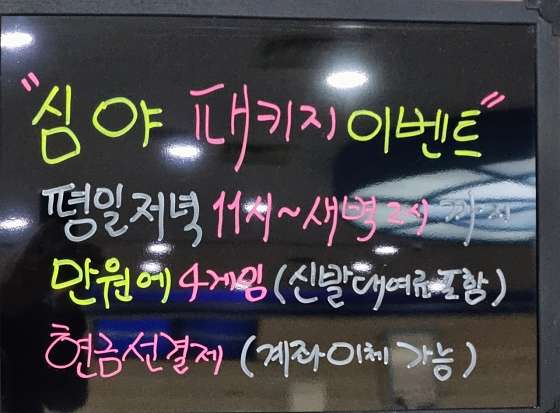 "심야 패키지 이벤트"
평일저녁 11시~새벽 2시 까지
만원에 4게임 (신발대여료포함)
현금선결제 (계좌이체 가능)